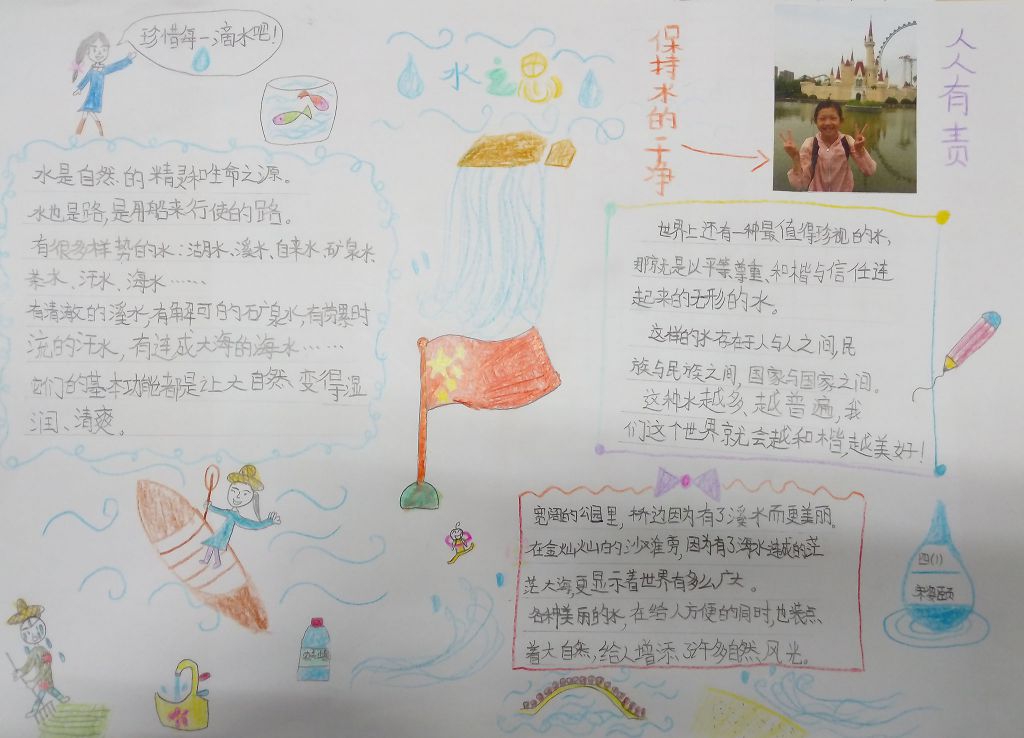 珍惜每一滴水吧!
水之思
保持水的干净
人人有责
水是自然的精灵和生命之源。
水也是路,是用船来行使的路。
有很多样势的水:湖水、溪水、自来水、矿泉水、
茶水、汗水、海水……
有清澈的溪水,有解可的矿泉水,有劳累时
流的汗水,有连成大海的海水……
它们的基本功能都是让大自然变得湿
润、清爽。
世界上还有一种最值得珍视的水,
那就是以平等尊重、和楷与信任连
起来的无形的水。
这样的水存在于人与人之间,民
族与民族之间,国家与国家之间。
这种水越多、越普遍,我
们这个世界就会越和楷,越美好!
宽阔的公园里,桥边因为有了溪水而更美丽。
在金灿灿的沙滩旁,因为有了海水造成的茫
茫大海,更显示着世界有多么广大。
各种美丽的水,在给人方便的同时,也装点
着大自然,给人增添了许多自然风光。
四(1)